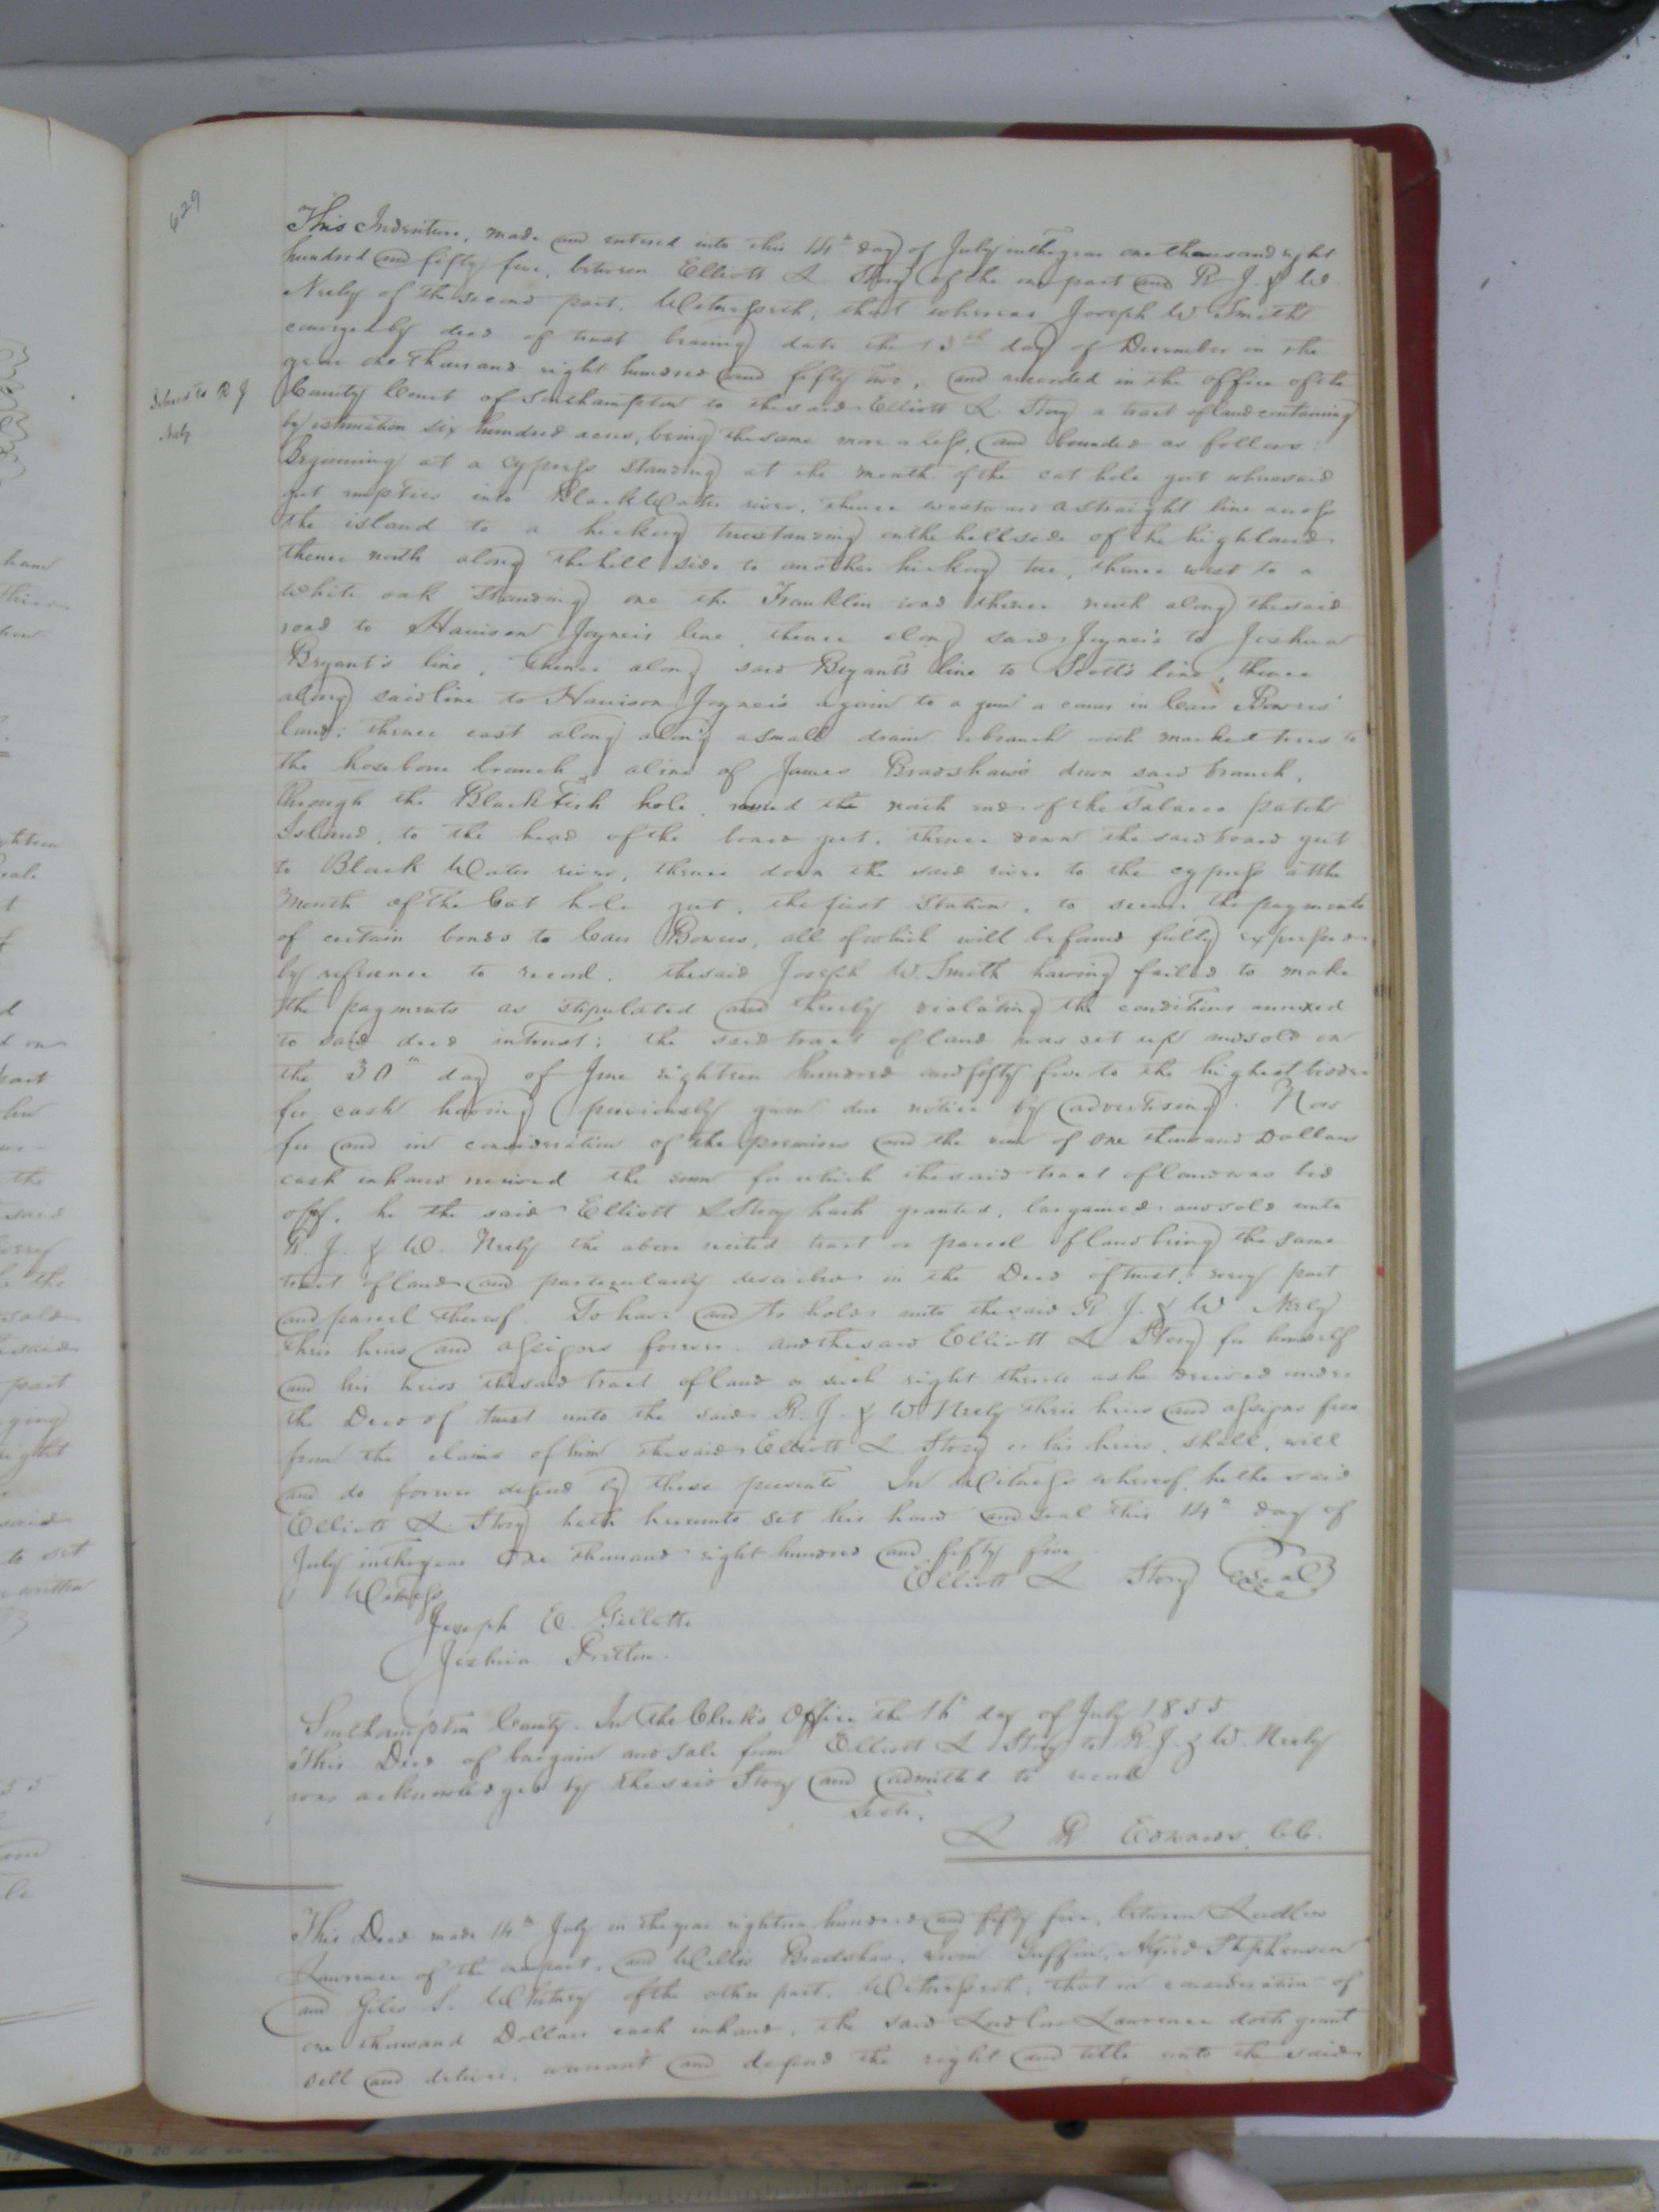 629
This Indenture, made and entered into this 14th day of July in the year one thousand eight
hundred and fifty five, between Elliott L Story of the one part and R. J. & W.
Neely of the second part, Witnesseth, that whereas Joseph W. Smith
conveyed by deed of trust bearing date the 13th day of December in the
year one thousand eight hundred and fifty two, and recorded in the office of the
Delivered to R J
County Court of Southampton to the said Elliott L. Story a tract of land containing
Neely
by estimation six hundred acres, being the same more or less, and bounded as follows:
Beginning at a cypress standing at the mouth of the cat hole gut where said
gut empties into Black Water river, thence westward a straight line across
the island to a hickory tree standing on the hill side of the highland
thence north along the hill side to another hickory tree, thence west to a
white oak standing one the Franklin road thence north along the said
road to Harrison Joyner's line, thence along said Joyner's to Joshua
Bryant's line, thence along said Bryant's line to Scott's line, thence
along said line to Harrison Joyner's again to a a corner in Carr Bowers'
land; thence east along along a small drain or branch with marked trees to
the branch, a line of James Bradshaw's down said branch,
through the Black Fish hole, round the north end of the Tobacco patch
Island, to the head of the gut, thence down the said gut
to Black Water river, thence down the said river to the cypress at the
mouth of the Cat hole gut, the first Station, to secure the payments
of certain bonds to Carr Bowers, all of which will be found fully expressed
by reference to record. the said Joseph W. Smith having failed to make
the payments as stipulated and thereby violating the conditions annexed
to said deed in trust; the said tract of land was set up and sold on
the 30th day of June eighteen hundred and fifty five to the highest bidder
for cash having previously given due notice by advertising. Now
for and in consideration of the premises and the sum of one thousand Dollars
cash in hand received the sum for which the said tract of land was bid
off, he the said Elliott L Story hath granted, bargained and sold unto
R. J. & W. Neely the above recited tract or parcel of land being the same
tract of land and particularly described in the Deed of trust, every part
and parcel thereof. To have and to hold unto the said R. J. & W. Neely
their heirs and assigns forever. and the said Elliott L Story for himself
and his heirs the said tract of land or such right thereto as he derived under
the Deed of trust unto the said R. J. & W Neely their heirs and assigns free
from the claims of him the said Elliott L Story or his heirs, shall, will
and do forever defend by these presents In Witness whereof, he the said
Elliott L. Story hath hereunto set his hand and seal this 14th day of
July in the year One thousand eight hundred and fifty five
Elliott L Story Seal
Witness
Joseph E Gillette
Joshua Pretlow.
Southampton County. In the Clerk's Office the 16th day of July 1855
This Deed of bargain and sale from Elliott L Story to R. J. & W. Neely
was acknowledged by the said Story and admitted to record
Teste.
L R Edwards, CC.
This Deed made 14th July in the year eighteen hundred and fifty five, between Ludlow
Lawrence of the one part, and Willis Bradshaw, Griffin, Alfred Stephenson
and Giles S. Whitney of the other part. Witnesseth; that in consideration of
one thousand Dollars cash in hand, the said Ludlow Lawrence doth grant
sell and deliver, warrant and defend the right and title unto the said